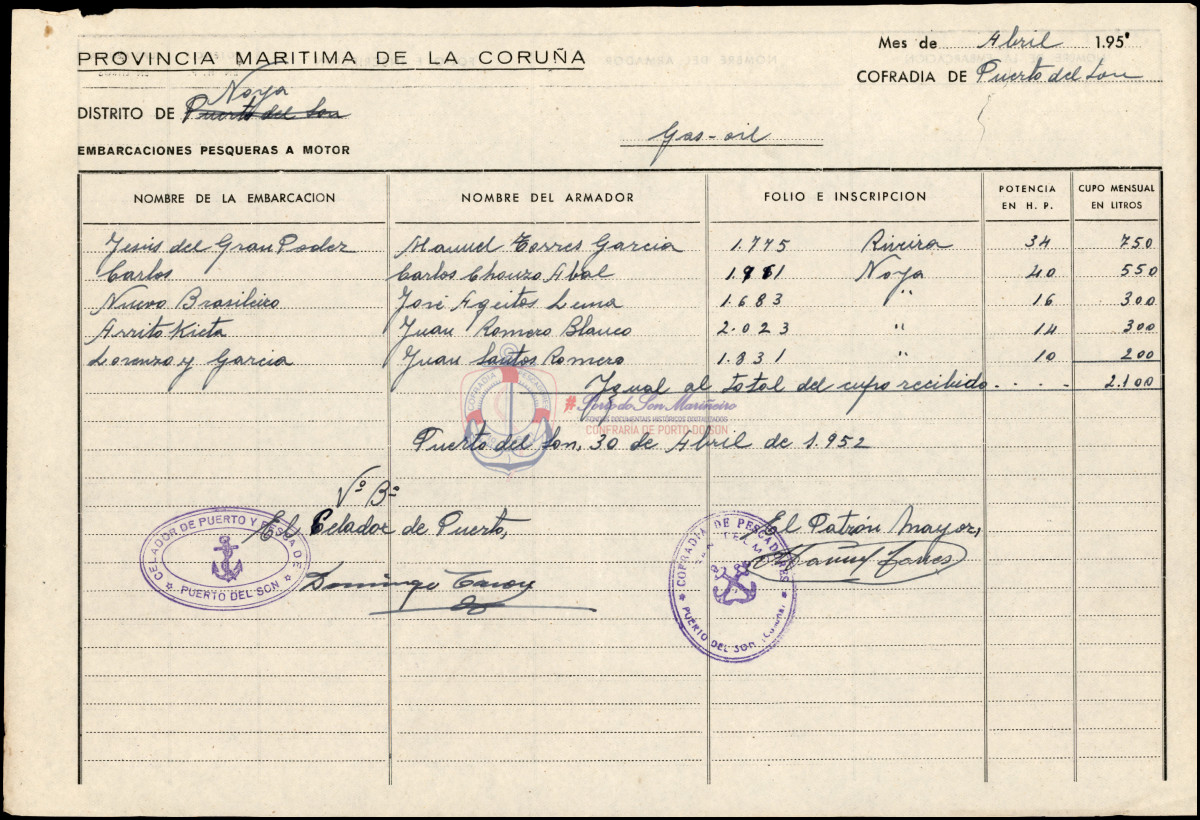 PROVINCIA MARITIMA DE LA CORUÑA
Mes de Abril 1.95
COFRADIA DE Puerto del Son
Noya
DISTRITO DE Puerto del Son
Gas-oil
EMBARCACIONES PESQUERAS A MOTOR
NOMBRE DE LA EMBARCACION NOMBRE DEL ARMADOR FOLIO E INSCRIPCION POTENCIA EN H. P. CUPO MENSUAL EN LITROS
Jesús del Gran Poder Manuel Torres Garcia 1.775 Riveira 34 750
Carlos Carlos Chouza Abal 1.981 Noya 40 550
Nuevo Brasileiro José Ageitos Lema 1.683 " 16 300
Arrito Kieta Juan Romero Blanco 2.023 " 14 300
Lorenzo y Garcia Juan Santos Romero 1.831 " 10 200
Igual al total del cupo recibido..... 2.100
#Porto do Son Mariñeiro
FONDOS DOCUMENTAIS HISTÓRICOS DIXITALIZADOS
CONFRARIA DE PORTO DO SON
Puerto del Son, 30 de Abril de 1.952
Vº Bº
El Celador de Puerto, El Patrón Mayor,
CELADOR DE PUERTO Y PESCA DE
PUERTO DEL SON
COFRADIA DE PESCADORES
PUERTO DEL SON (Coruña)
Domingo
Manuel Torres